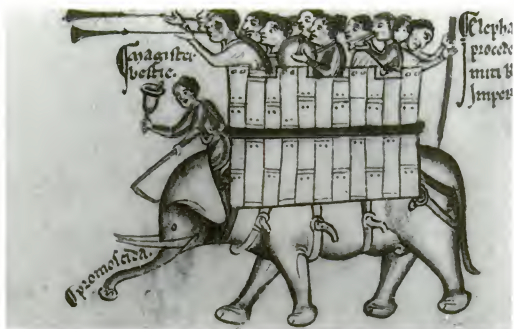 Magister
bestie.
Elepha
procede
miti
Imper
promoscida.